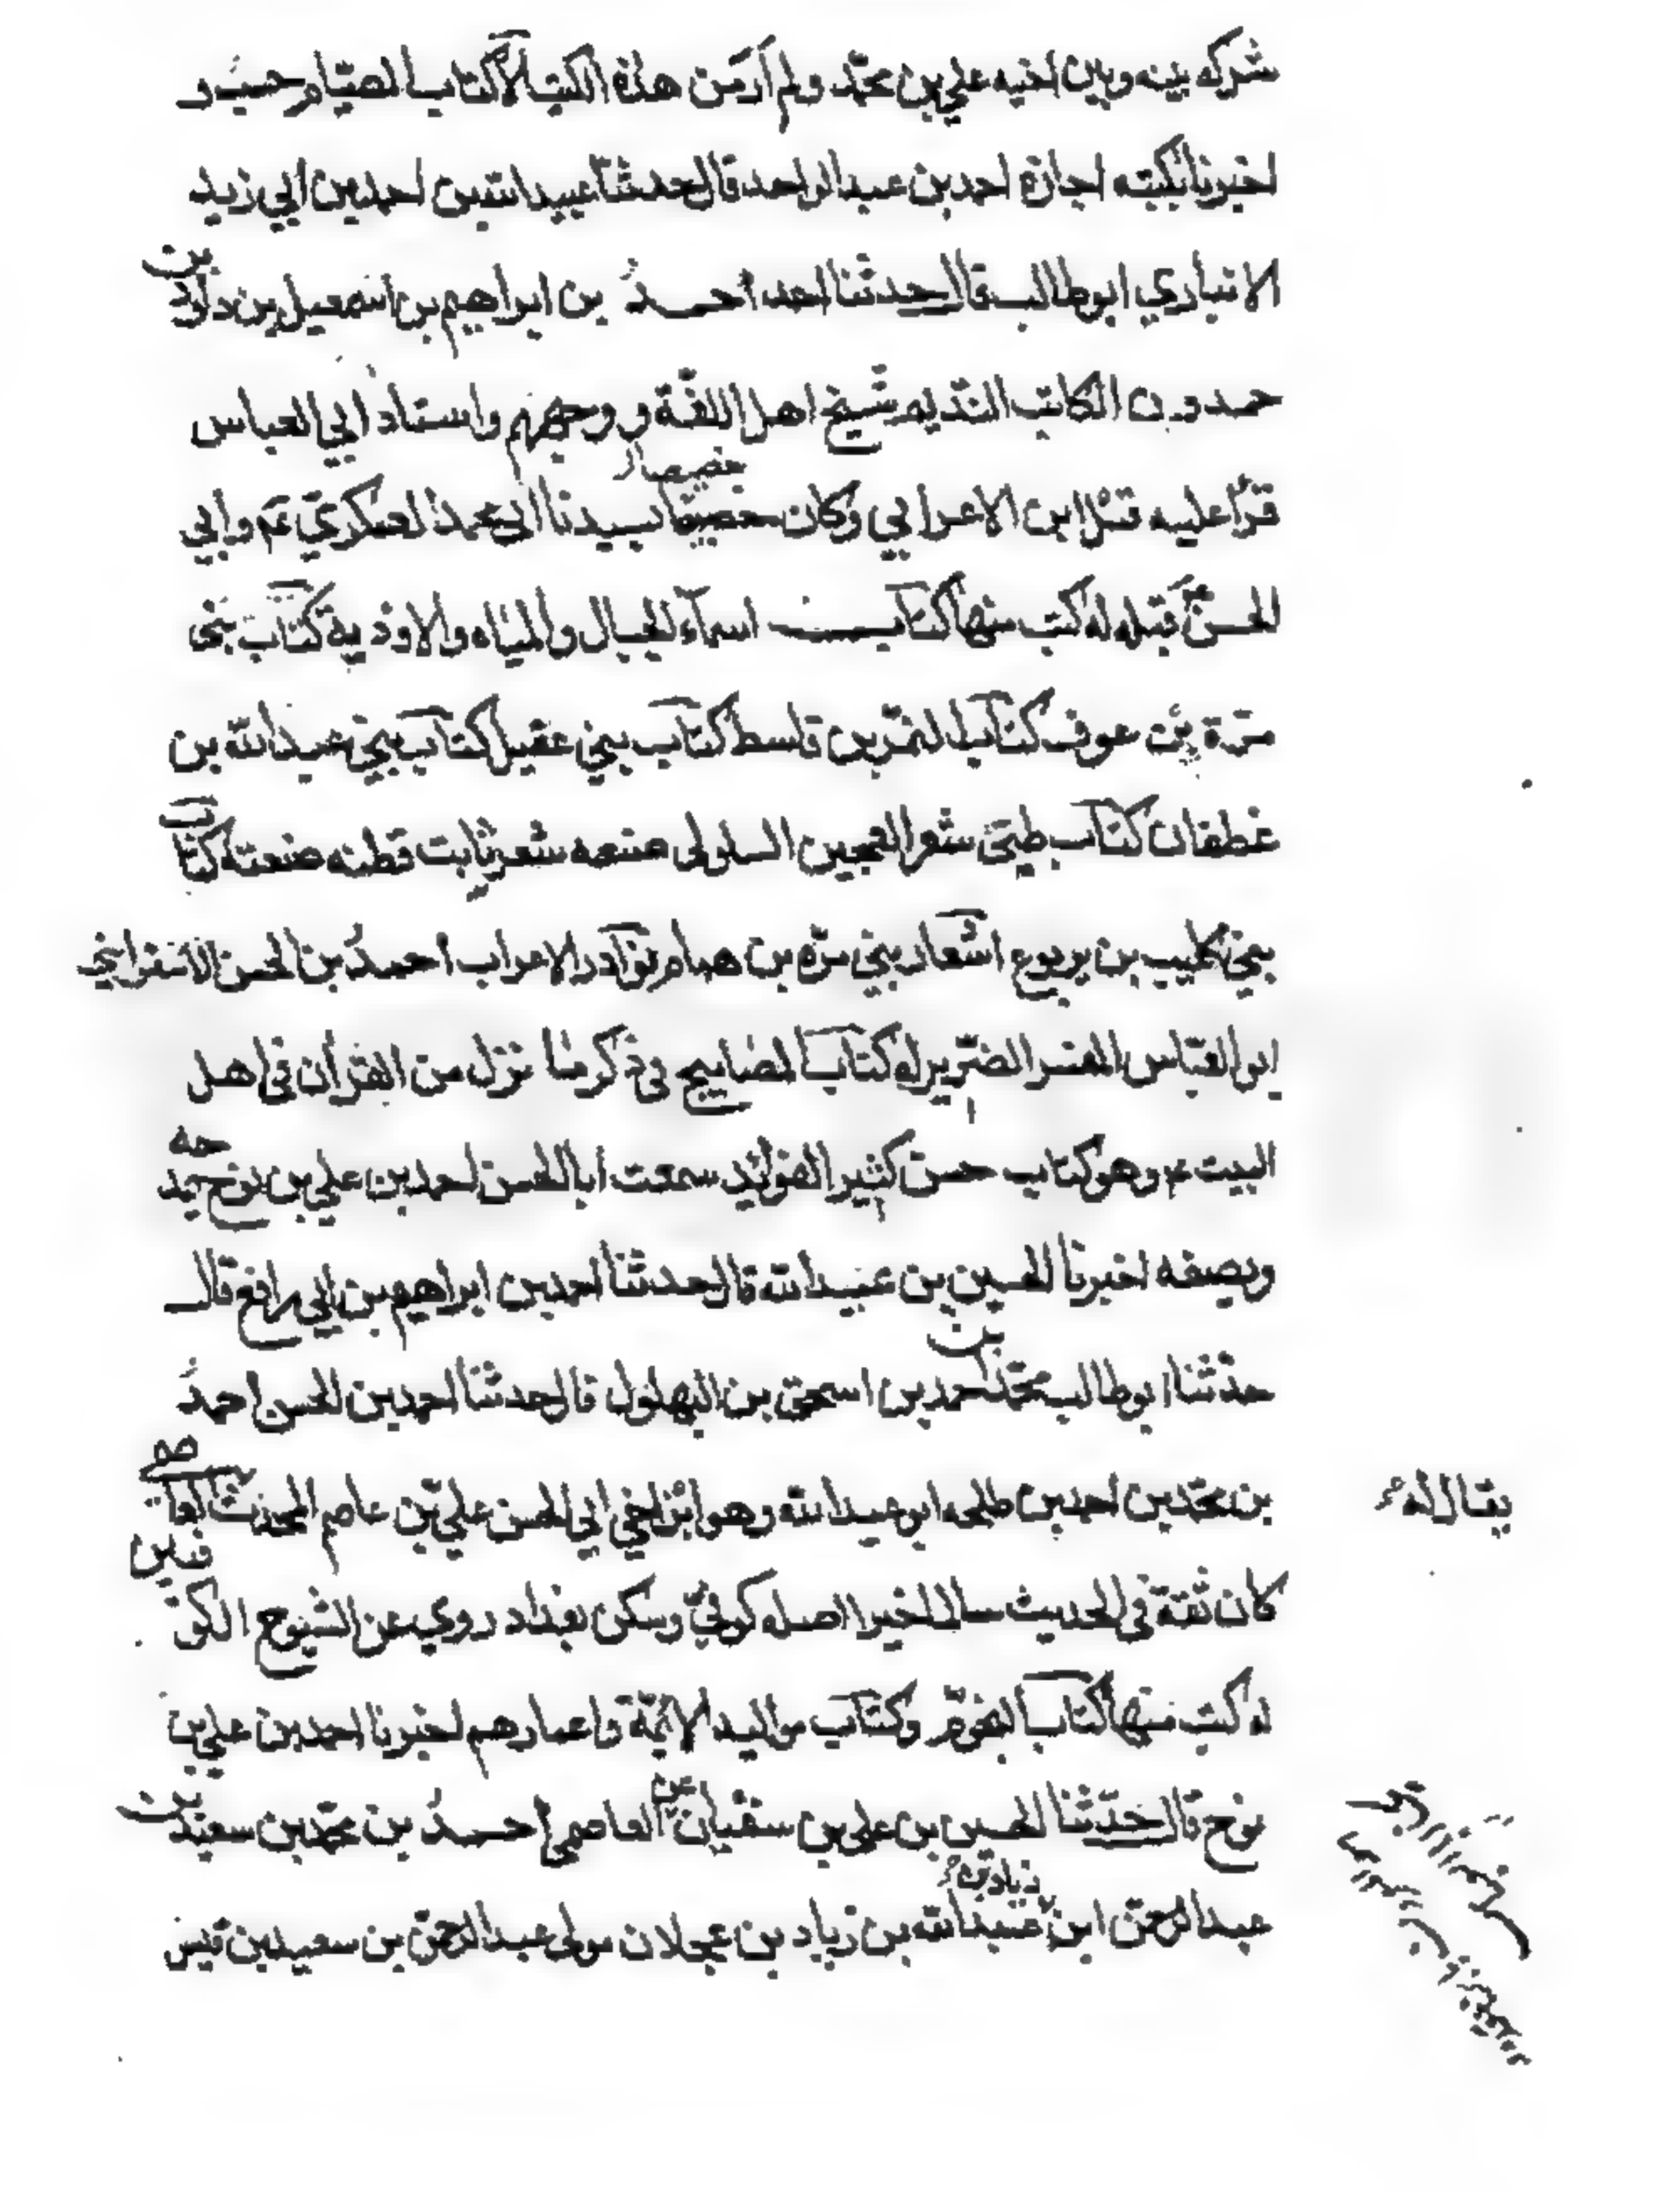 شركه بينه وبين اخيه علي بن محمد ولم أر من هذه الكتب الا كتاب الصيام حسب
اخبرنا بكتبه اجازة احمد بن عبد الواحد قال حدثنا عبيد الله بن احمد بن ابي زيد
الانباري ابو طالب قال حدثنا احمد أحمد بن ابراهيم بن اسمعيل بن داود بن
حمدون الكاتب النديم شيخ اهل اللغة و ووجههم واستاد ابي العباس
قرأ عليه قبل ابن الاعرابي وكان خصيصا بسيدنا ابي محمد العسكري ع م وابي
الحسن ع م قبله له كتب منها كتاب اسماء الجبال والمياه والاوذية كتاب بني
مرة بن عوف كتاب النمر بن قاسط كتاب بني عقيل كتاب بني عبد الله بن
غطفان كتاب طيئ شعر العجير السلولى صنعه شعر ثابت قطنه صنعته كتاب
بني كليب بن يربوع اشعار بني مرة بن همام نوادر الاعراب أحمد بن الحسن الاسفرايني
ابو العباس المفسر الضرير له كتاب المصابيح فى ذكر ما نزل من القرآن في اهل
البيت ع م وهو كتاب حسن كثير الفوائد سمعت ابا العباس احمد بن علي بن نوح يمدحه
ويصفه اخبرنا الحسين بن عبيد الله قال حدثنا احمد بن ابراهيم بن ابي رافع قال
حدثنا ابو طالب محمد بن احمد بن اسحق بن البهلول قال حدثنا احمد بن الحسن احمد
بن محمد بن احمد بن طلحه ابو عبد الله وهو ابن اخي ابي الحسن علي بن عاصم المحدث يقال له العاصمي
كان ثقة في الحديث سالما خيرا اصله كوفي وسكن بغداد روي عن الشيوخ الكوفيين
له كتب منها كتاب النجوم وكتاب مواليد الائمة واعمارهم اخبرنا احمد بن علي بن
نوح قال حدثنا الحسين بن علي بن سفيان عن العاصمي أحمد بن محمد بن سعيد بن
عبد الرحمن ابن زياد بن عبد الله بن زياد بن عجلان مولى عبد الرحمن بن سعيد بن قيس